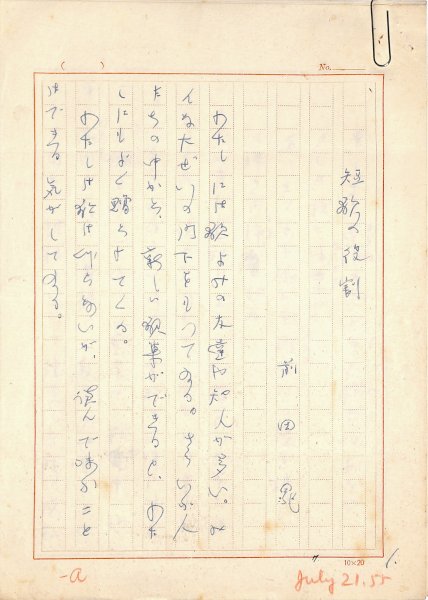 ( )
No.
短歌の役割
前田晁
わたしには歌よみの友達や知人が多い。み
んな大ぜいの門下をもつてゐる。さういふ人
たちの中から、新しい歌集ができると、わた
しにもよく贈られてくる。
わたしは歌は作らないが、讀んで味ふこと
はできる気がしてゐる。
10×20
1.
-a
July 21.55